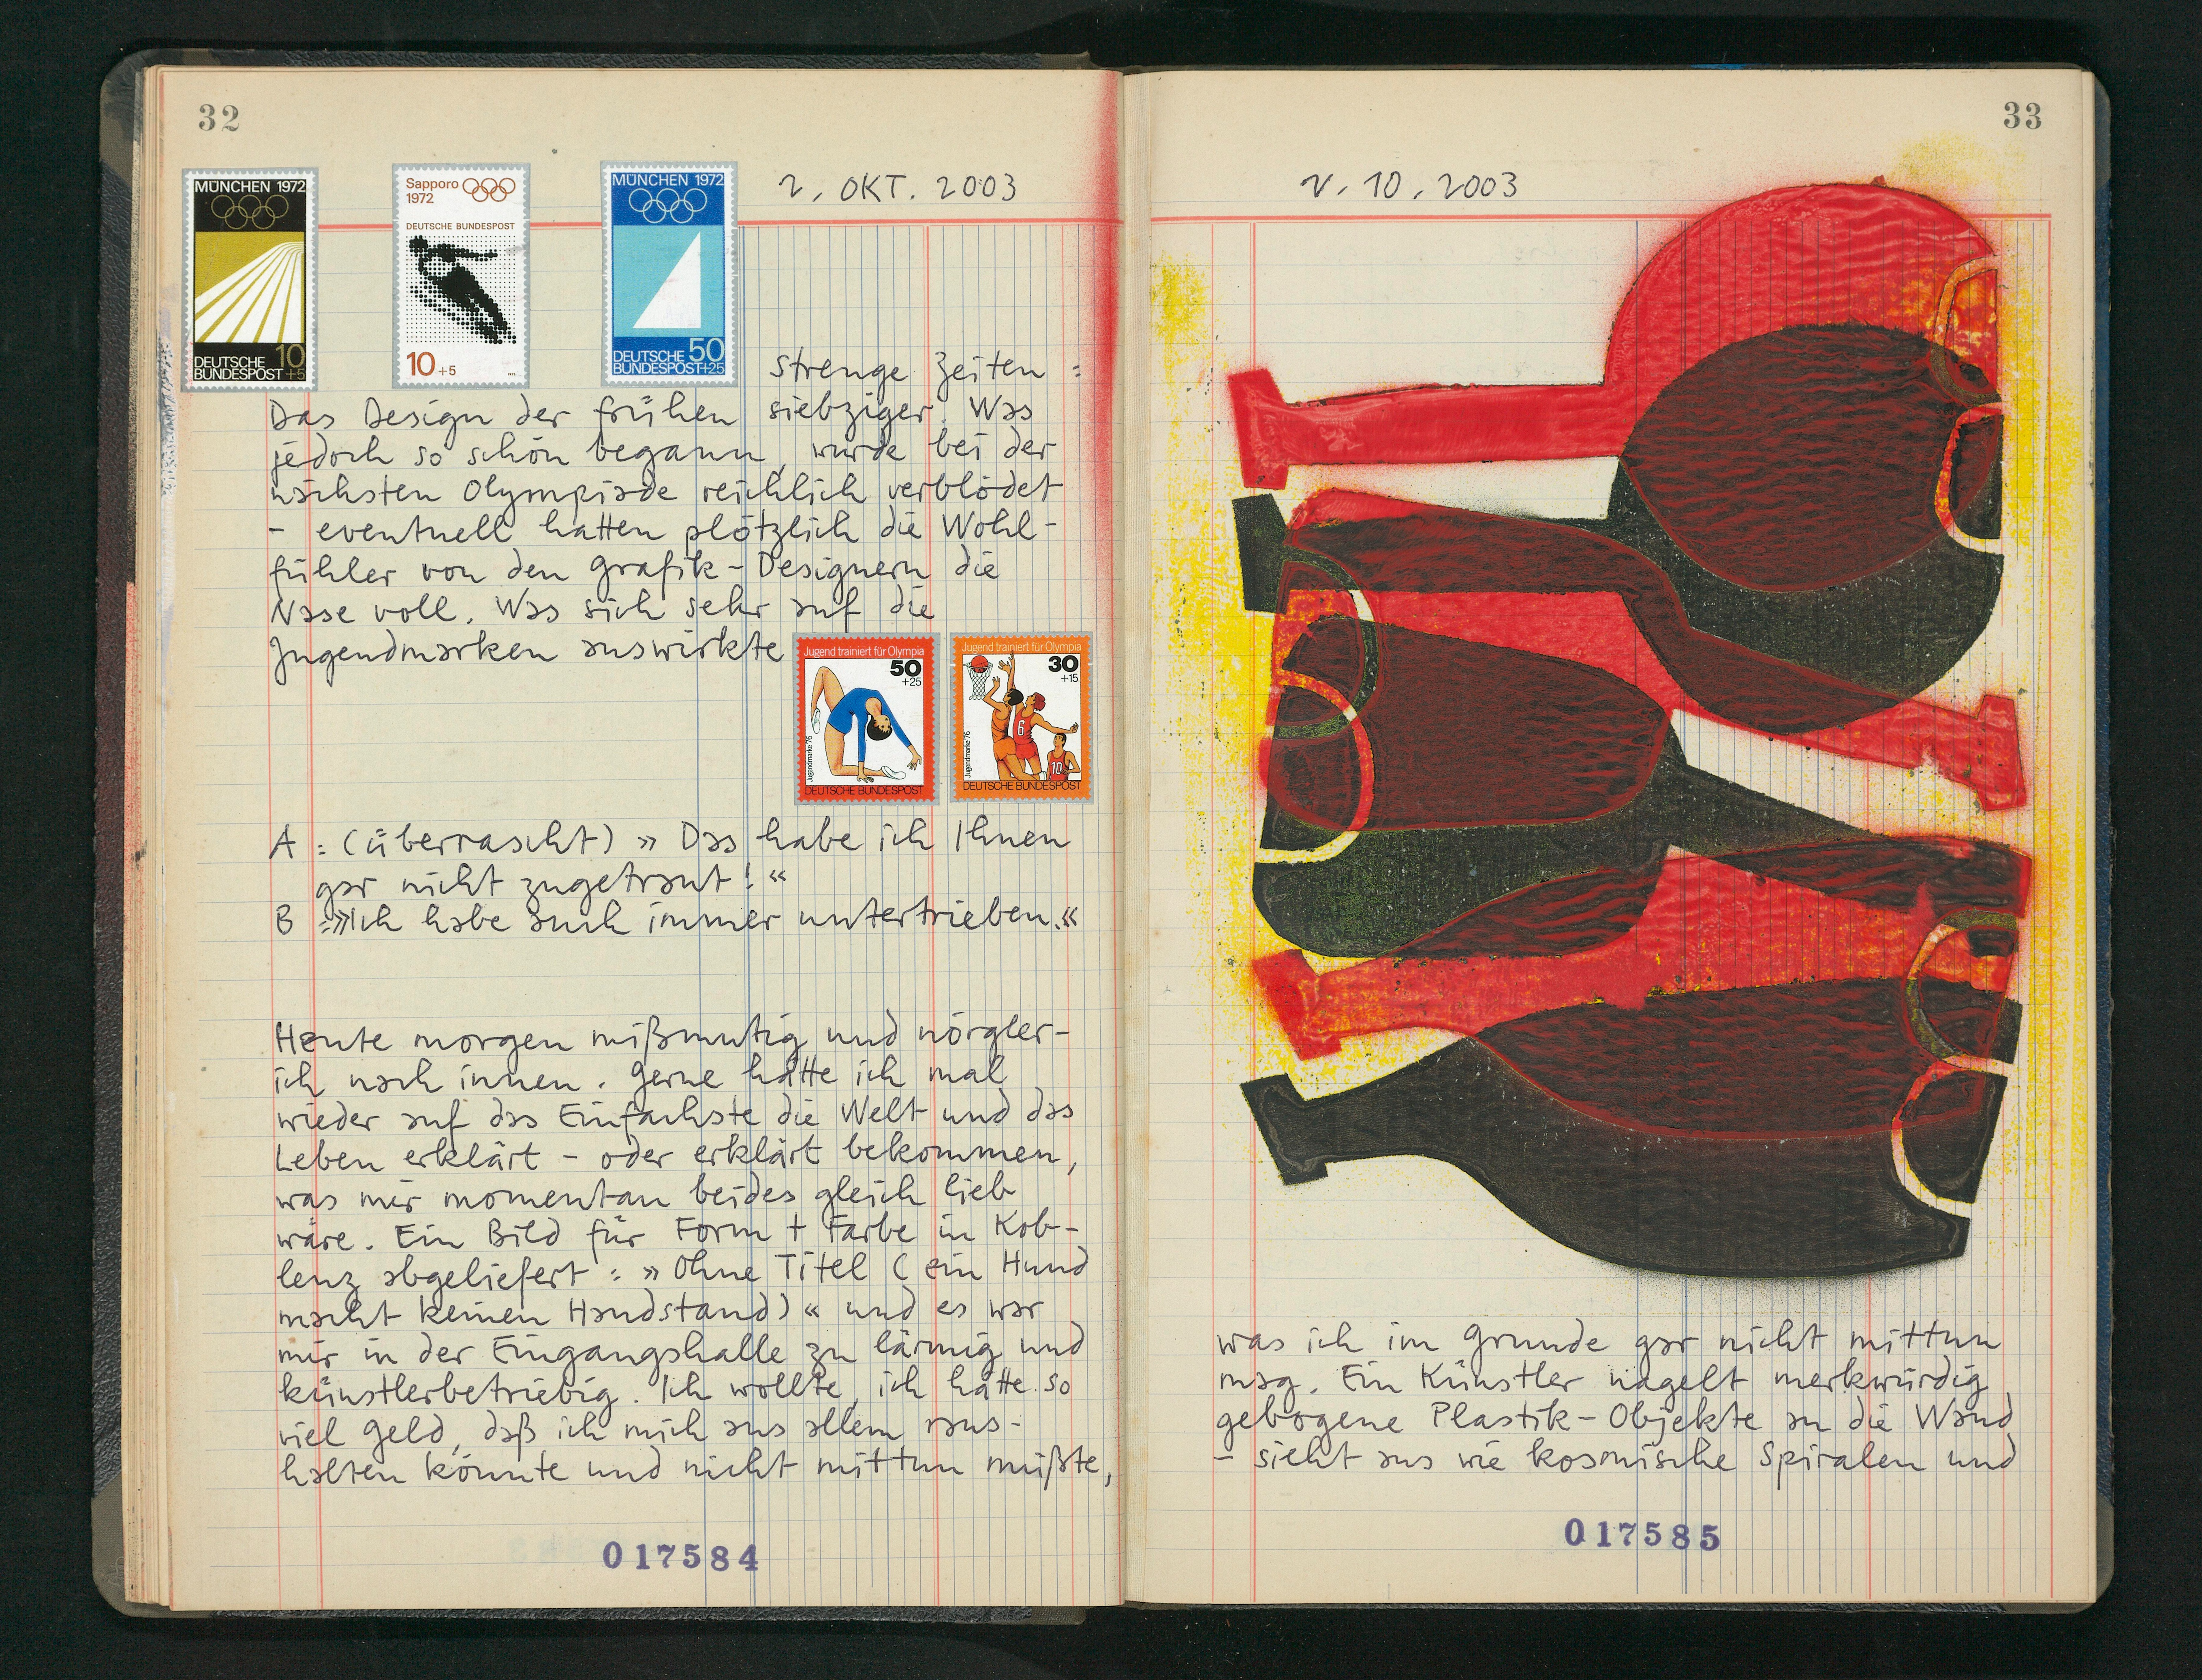 32
MÜNCHEN 1972
DEUTSCHE 10
BUNDESPOST +5
Sapporo
1972
DEUTSCHE BUNDESPOST
10 +5
MÜNCHEN 1972
DEUTSCHE 50
BUNDESPOST +25
2. OKT. 2003
Strenge Zeiten :
Das Design der frühen siebziger. Was
jedoch so schön begann, wurde bei der
nächsten Olympiade reichlich verblödet
- eventuell hatten plötzlich die Wohl-
fühler von den Grafik-Designern die
Nase voll. Was sich sehr auf die
Jugendmarken auswirkte
Jugend trainiert für Olympia
50
+25
Jugendmarke '76
DEUTSCHE BUNDESPOST
Jugend trainiert für Olympia
30
+15
6
10
Jugendmarke '76
DEUTSCHE BUNDESPOST
A : (überrascht) » Das habe ich Ihnen
gar nicht zugetraut! «
B :»Ich habe auch immer untertrieben.«
Heute morgen mißmutig und nörgler-
ich nach innen. Gerne hätte ich mal
wieder auf das Einfachste die Welt und das
Leben erklärt - oder erklärt bekommen,
was mir momentan beides gleich lieb
wäre. Ein Bild für Form + Farbe in Kob-
lenz abgeliefert : » Ohne Titel ( ein Hund
macht keinen Handstand) « und es war
mir in der Eingangshalle zu lärmig und
künstlerbetriebig. Ich wollte, ich hätte so
viel Geld, daß ich mich aus allem raus-
halten könnte und nicht mittun müßte,
017584
33
2. 10. 2003
was ich im Grunde gar nicht mittun
mag. Ein Künstler nagelt merkwürdig
gebogene Plastik-Objekte an die Wand
- sieht aus wie kosmische Spiralen und
017585